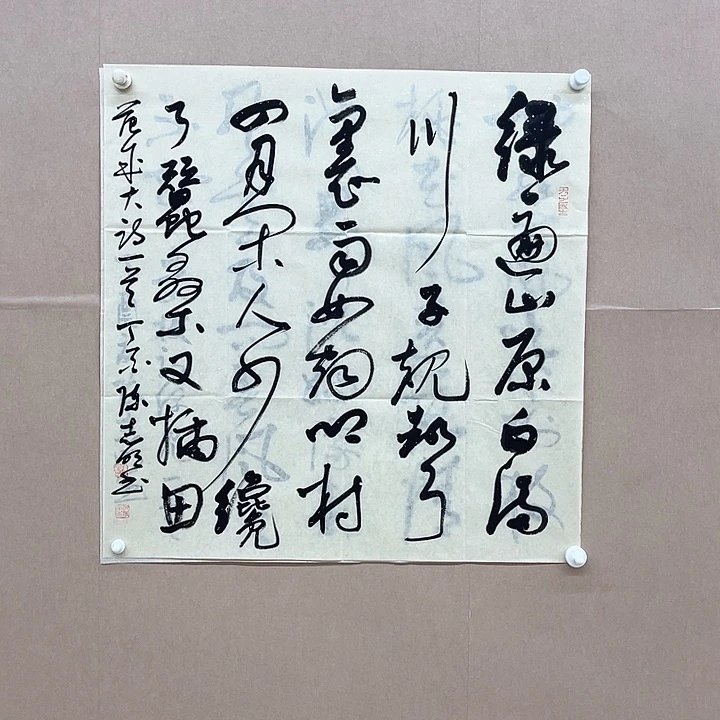 绿遍山原白满
川子规聲
裏雨如烟乡村
四月闲人少纔
了蠶桑又插田
范成大诗一首 陈志明书